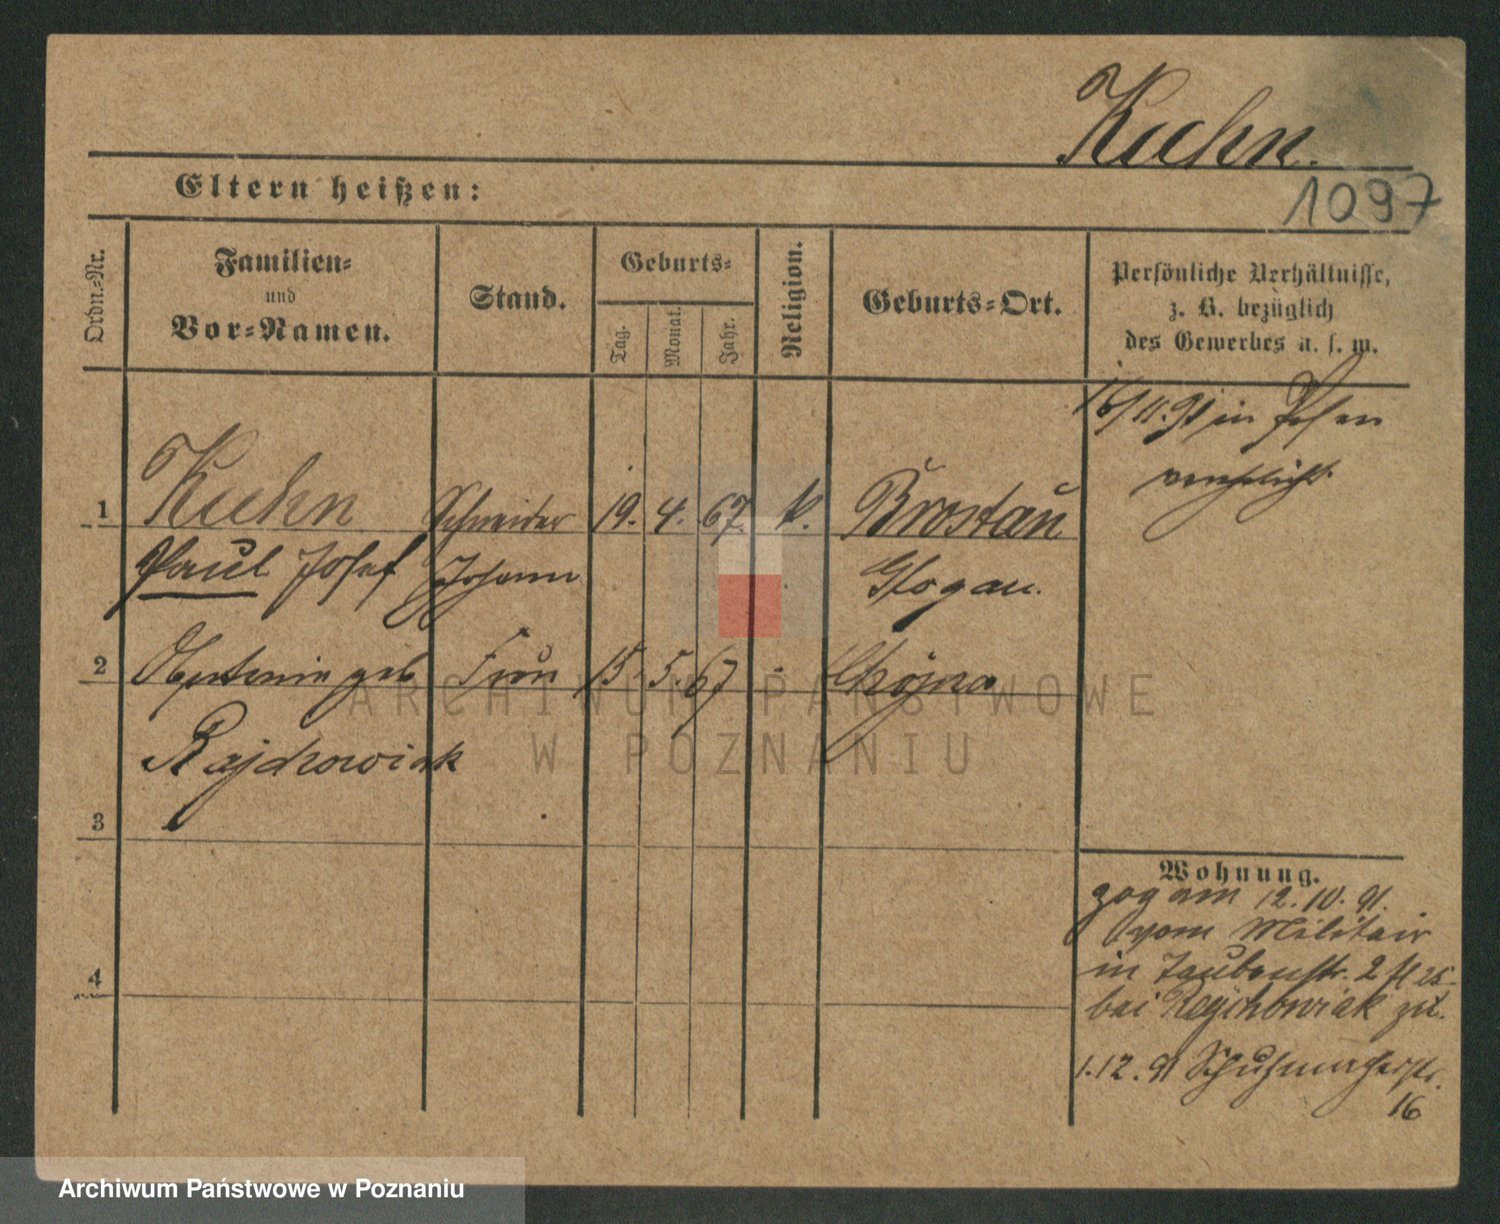 Kuhn.
1097
Eltern heißen:
Ordn.-Nr.
Familien-
und
Vor-Namen.
Stand.
Geburts-
Tag.
Monat.
Jahr.
Religion.
Geburts-Ort.
Persönliche Verhältnisse,
z. B. bezüglich
des Gewerbes u. s. w.
16/11.91 in Posen
verehelicht.
1 Kuhn Schneider 19. 4. 67. k. Brostau
Paul Josef Johann Glogau.
2 geb Frau 15. 5. 67 Chojna
Rajchowiak
3
4
Wohnung.
zog am 12.10.91.
vom Militair
in Taubenstr. 2
bei Rajchowiak zu.
1.12.91 Schuhmacherstr.
16
ARCHIWUM PAŃSTWOWE
W POZNANIU
Archiwum Państwowe w Poznaniu